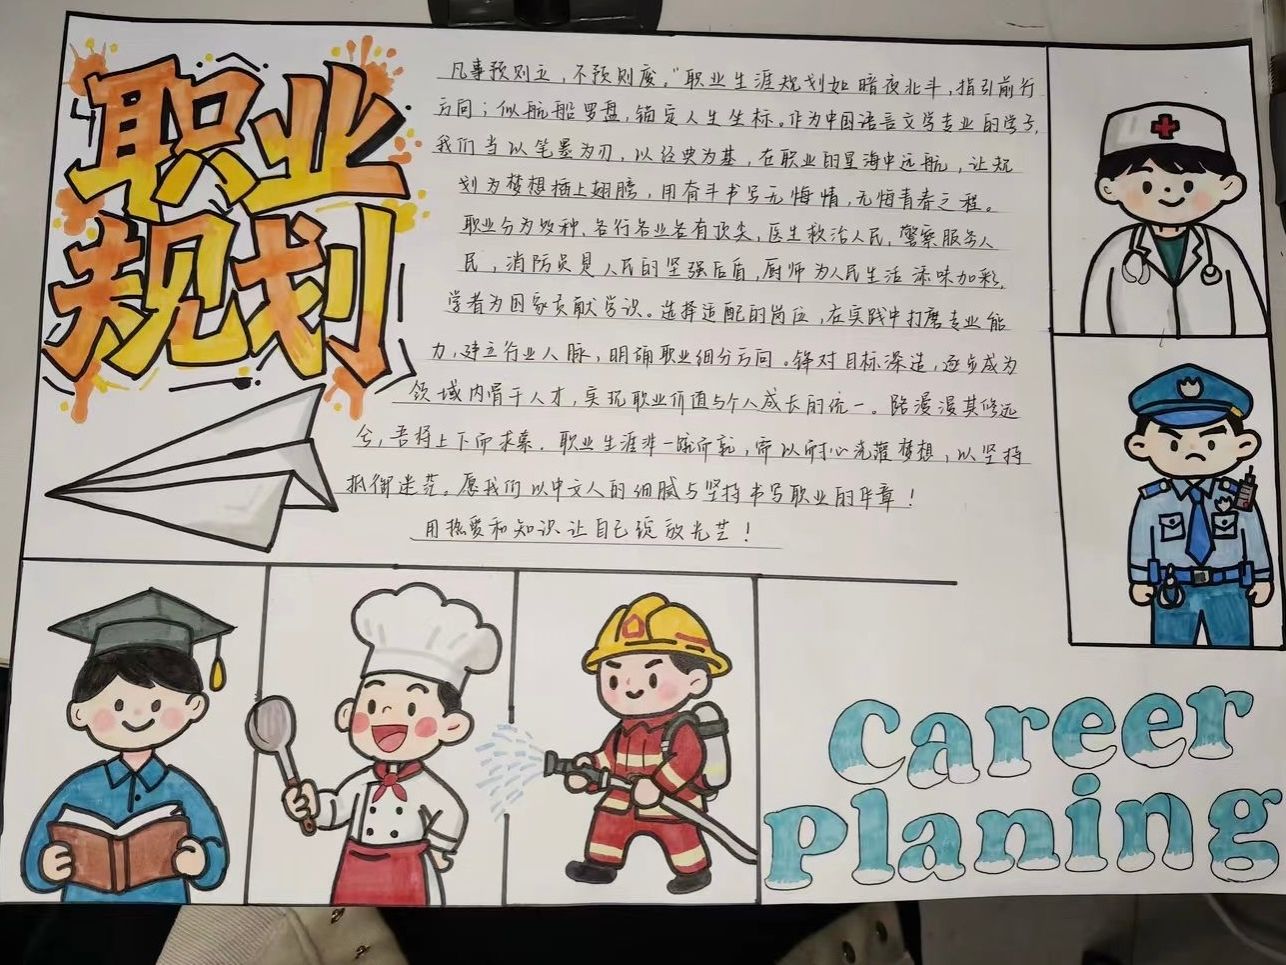 职业
规划
凡事预则立，不预则废。"职业生涯规划如暗夜北斗，指引前行
方向；似航船罗盘，锚定人生坐标。作为中国语言文学专业的学子，
我们当以笔墨为刃，以经典为基，在职业的星海中远航，让规
划为梦想插上翅膀，用奋斗书写无悔情，无悔青春之程。
职业分为数种，各行各业各有顶尖，医生救治人民，警察服务人
民，消防员是人民的坚强后盾，厨师为人民生活添味加彩，
学者为国家贡献学识。选择适配的岗位，在实践中打磨专业能
力，建立行业人脉，明确职业细分方向。锋对目标深造，逐步成为
领域内骨干人才，实现职业价值与个人成长的统一。路漫漫其修远
兮，吾将上下而求索。职业生涯非一蹴而就，需以耐心浇灌梦想，以坚持
抵御迷茫。愿我们以中文人的细腻与坚持书写职业的华章！
用热爱和知识让自己绽放光芒！
Career
Planing